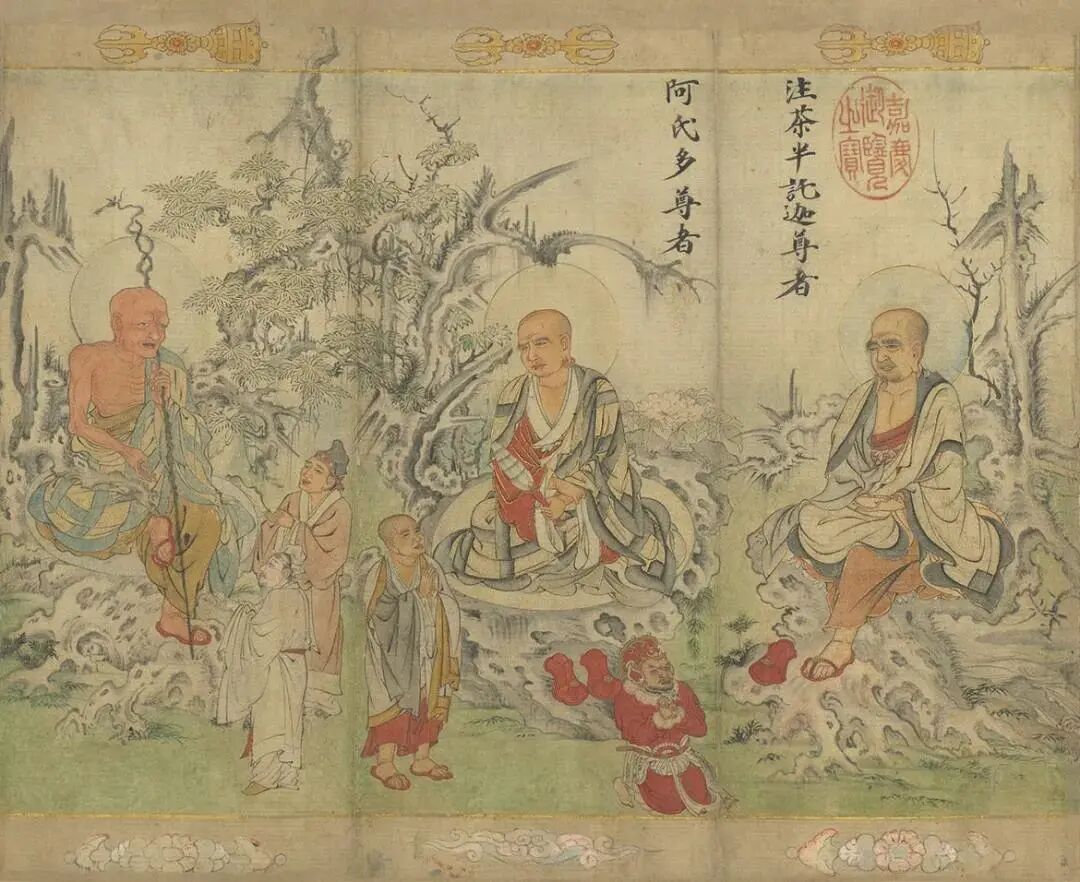 嘉慶
御覽
之寶
注茶半託迦尊者
阿氏多尊者